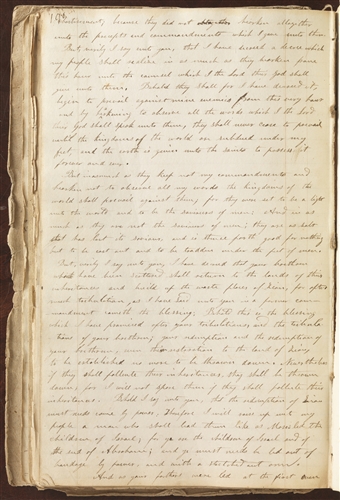 198
testament; because they did not hearken altogether
unto the precepts and commandments which I gave unto them
But, verily I say unto you, that I have decreed a decree which
my people shall realize in as much as they hearken from
this hour unto the counsel which I the Lord their God shall
give unto them. Behold they shall for I have decreed it,
begin to prevail against mine enemies from this very hour
and by hearkning to observe all the words which I the Lord
their God shall speak unto them, they shall never cease to prevail
until the kingdoms of the world are subdued under my
feet and the earth is given unto the saints to possess it
forever and ever.
But inasmuch as they keep not my commandments and
hearken not to observe all my words the kingdoms of the
world shall prevail against them, for they were set to be a light
unto the world and to be the saviours of men; And in as
much as they are not the saviours of men, they are as salt
that has lost its savour, and is thence forth good for nothing
but to be cast out and to be trodden under the feet of men.
But, verily I say unto you, I have decreed that your brethren
which have been scattered shall return to the lands of their
inheritances and build up the waste places of Zion, for after
much tribulation, as I have said unto you in a former com-
mandment cometh the blessing. Behold this is the blessing
which I have promised after your tribulations and the tribula
tions of your brethren; your redemption and the redemption of
your brethren, even their restoration to the land of Zion,
to be established no more to be thrown down; Nevertheless
if they shall pollute their inheritances, they shall be thrown
down; for I will not spare them if they shall pollute their
inheritances. Behold I say unto you, the redemption of Zion
must needs come by power; Therefore I will raise up unto my
people a man who shall lead them like as Moses led the
children of Israel, for ye are the children of Israel and of
the seed of Abraham; and ye must needs be led out of
bondage by power, and with a stretched out arm.
And as your fathers were led at the first even